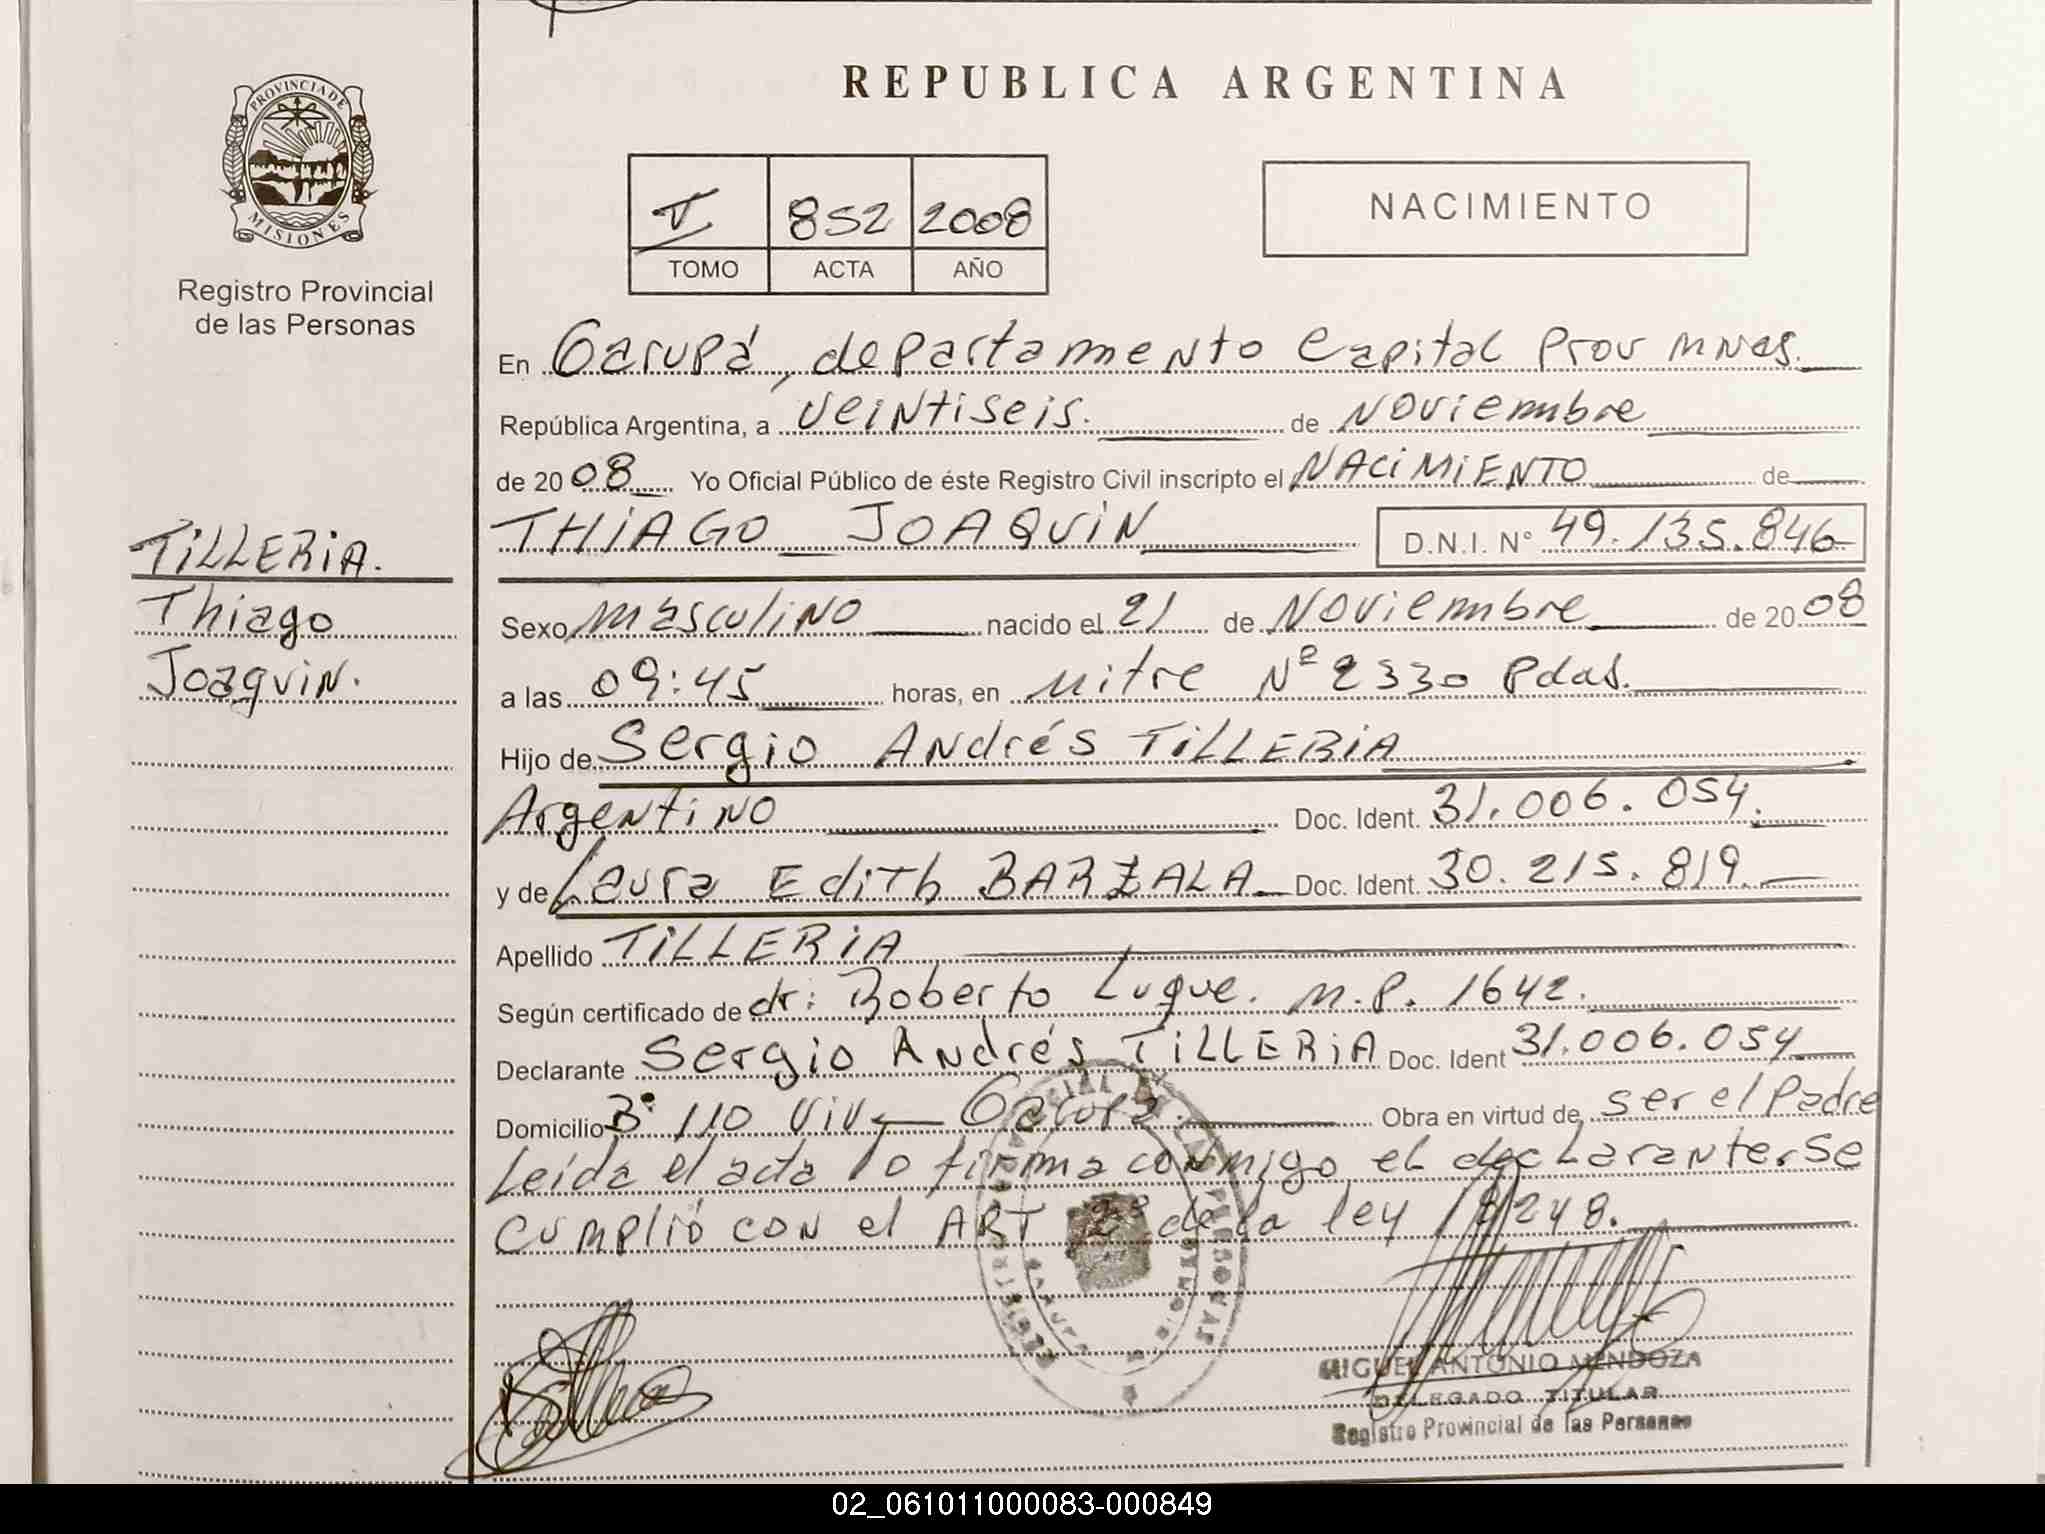 PROVINCIA DE
MISIONES
Registro Provincial
de las Personas
TILLERIA.
Thiago
Joaquin.
REPUBLICA ARGENTINA
V 852 2008
TOMO ACTA AÑO
NACIMIENTO
En Garupá, departamento Capital Prov Mnes.
República Argentina, a veintiseis. de Noviembre
de 2008 Yo Oficial Público de éste Registro Civil inscripto el NACIMIENTO de
THIAGO JOAQUIN D.N.I. N° 49.135.846
Sexo masculino nacido el 21 de Noviembre de 2008
a las 09:45 horas, en Mitre Nº 2330 Pdas.
Hijo de Sergio Andrés TILLERIA
Argentino Doc. Ident. 31.006.054.
y de Laura Edith BARZALA Doc. Ident. 30.215.819.
Apellido TILLERIA
Según certificado de dr: Roberto Luque. M.P. 1642.
Declarante Sergio Andrés TILLERIA Doc. Ident 31.006.054
Domicilio B° 110 Viv. Garupá. Obra en virtud de ser el Padre
Leída el acta lo firma conmigo el declarante. Se
cumplió con el ART 2º de la ley 18248.
MIGUEL ANTONIO MENDOZA
DELEGADO TITULAR
Registro Provincial de las Personas
02_061011000083-000849